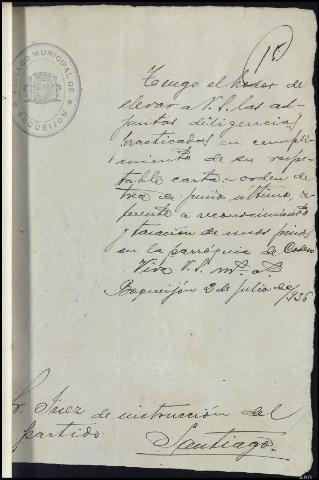 JUZGADO MUNICIPAL DE
BOQUEIJON
Tengo el honor de
elevar a V.S. las ad-
juntas diligencias
practicadas en cumpli-
miento de su respe-
table carta-orden de
de junio último, re-
ferente a reconocimiento
y tasación de unos pinos
en la parroquia de
Viva V.S. ms. as.
Boqueijón 2 de Julio de 1936
Sr. Juez de instrucción del
partido.
Santiago.